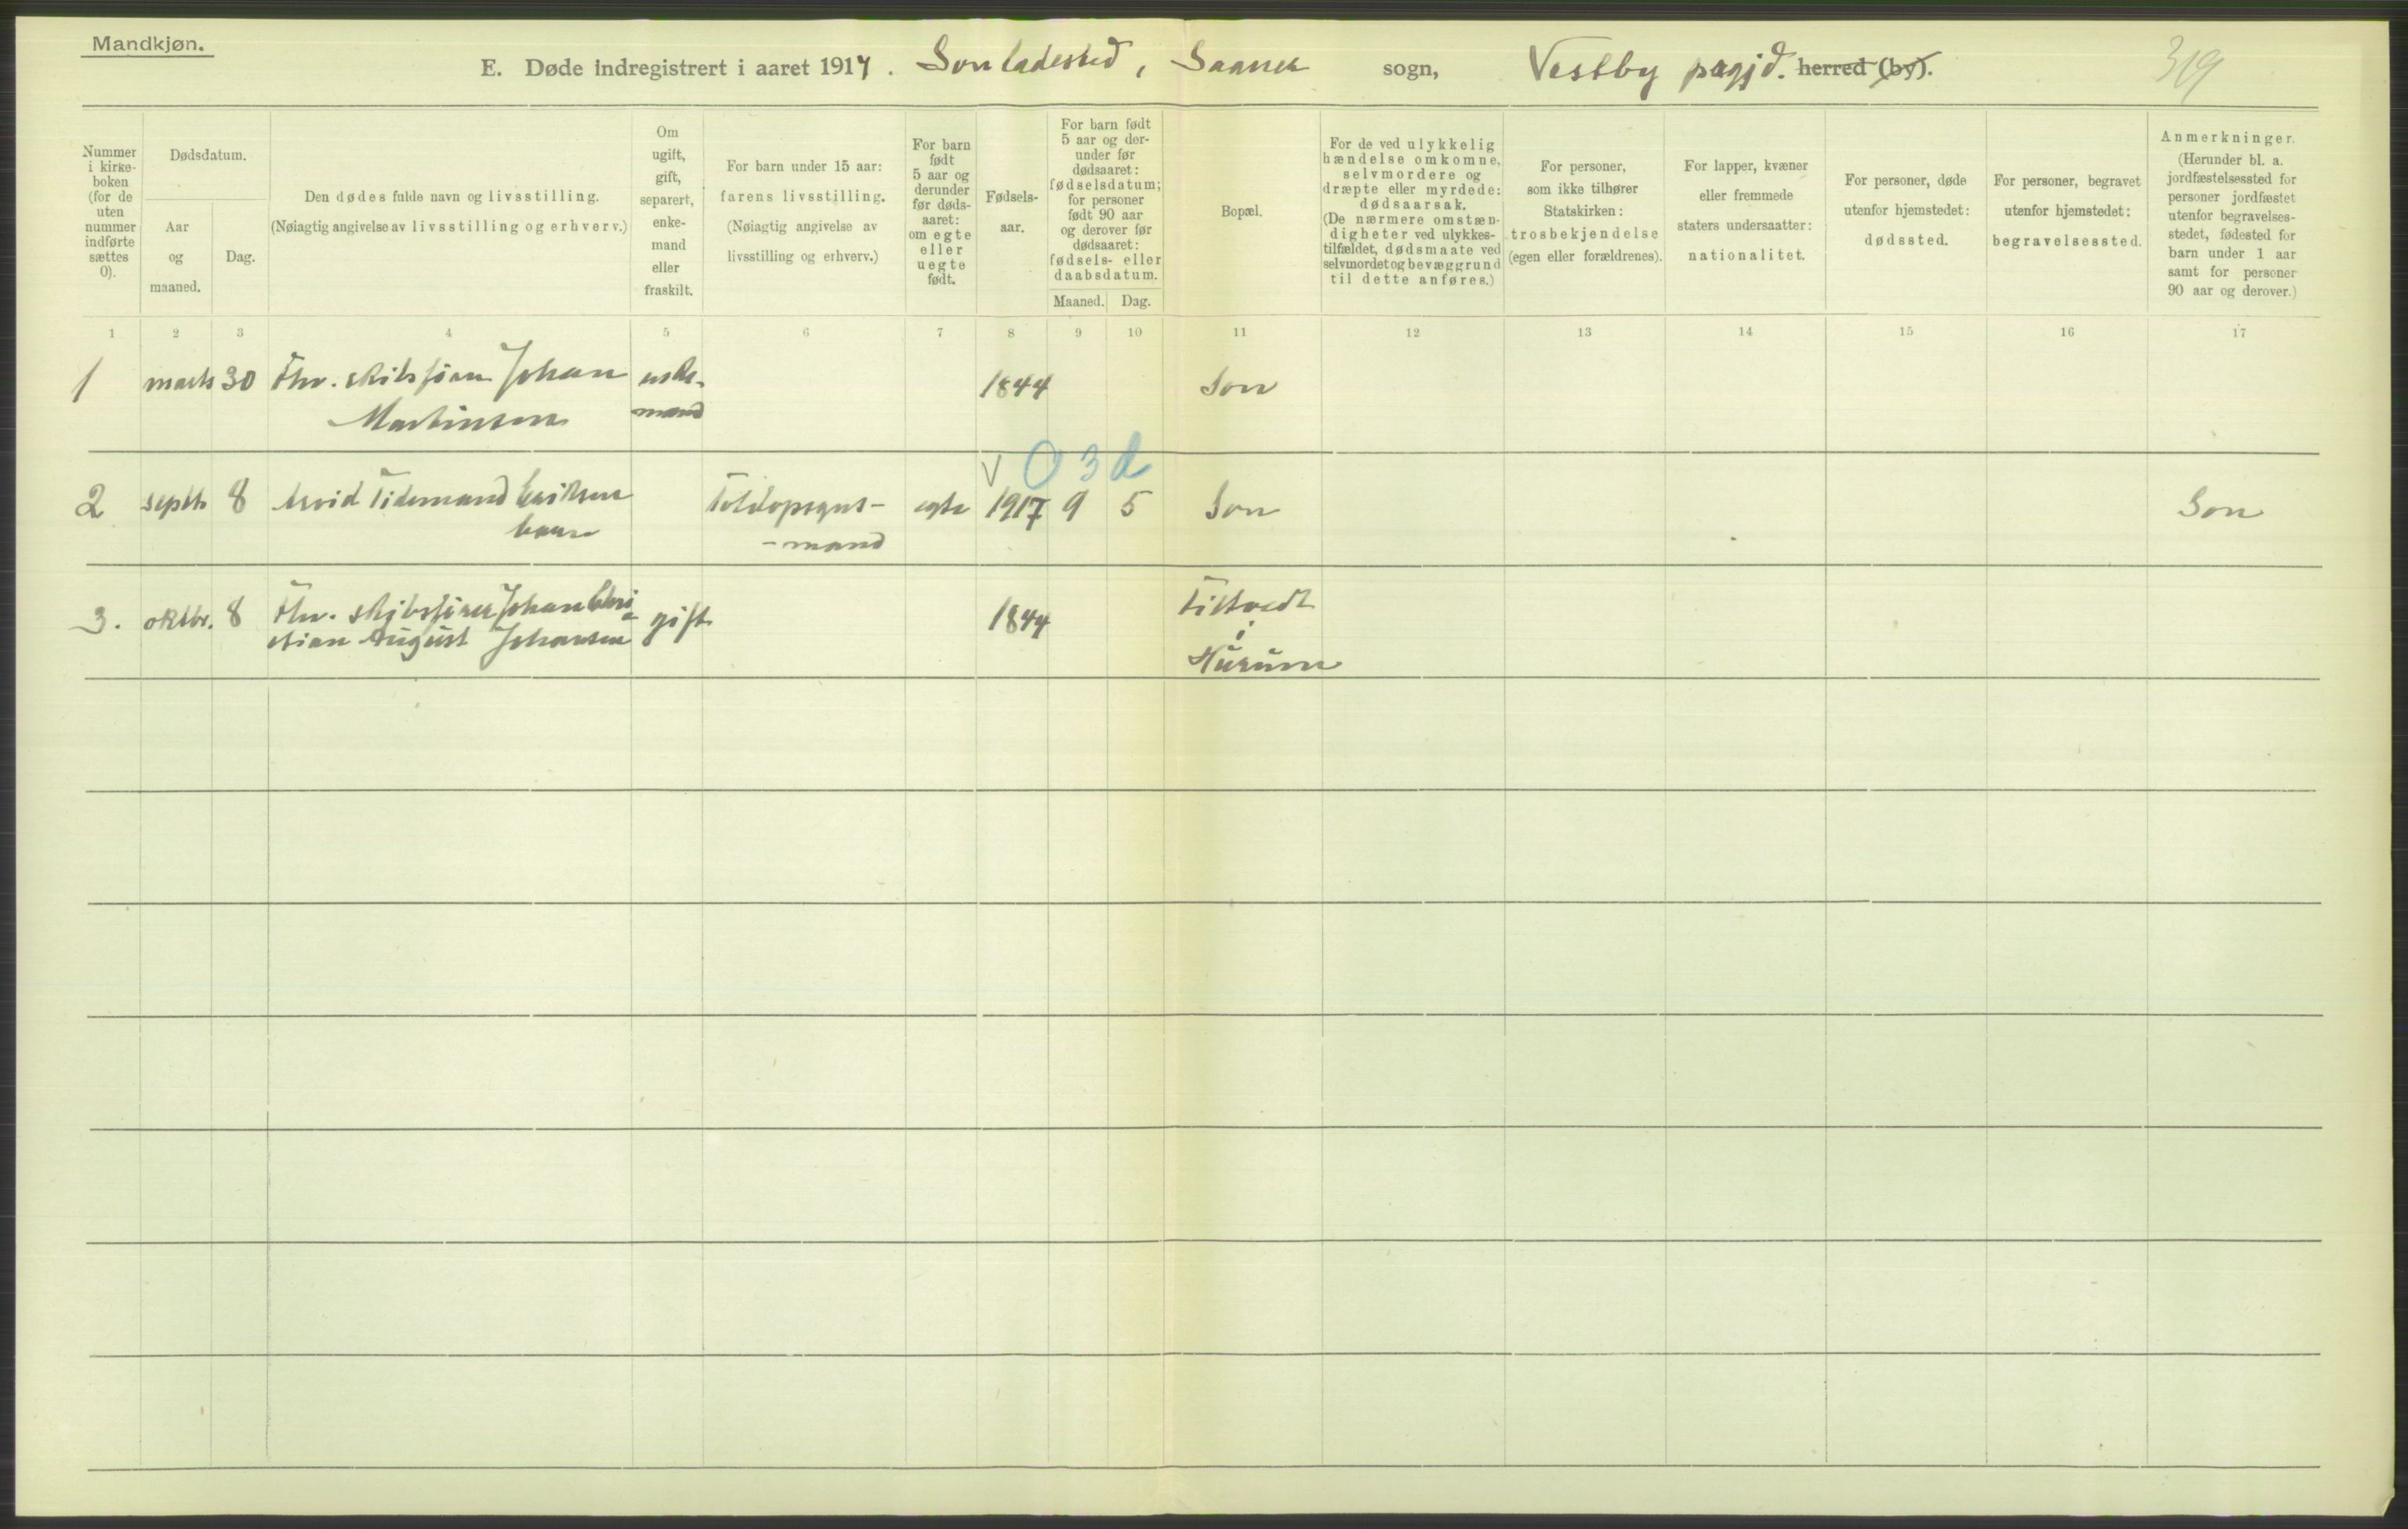 Mandkjøn.
E. Døde indregistrert i aaret 1917. Son ladested, Saaner sogn, Vestby prgjd. herred (by). 319
Nummer i kirke-boken (for de uten nummer indførte sættes 0).
Dødsdatum.
Aar og maaned.
Dag.
Den dødes fulde navn og livsstilling.
(Nøiagtig angivelse av livsstilling og erhverv.)
Om ugift, gift, separert, enke-mand eller fraskilt.
For barn under 15 aar:
farens livsstilling.
(Nøiagtig angivelse av livsstilling og erhverv.)
For barn født 5 aar og derunder før døds-aaret: om egte eller uegte født.
Fødsels-aar.
For barn født 5 aar og der-under før dødsaaret: fødselsdatum; for personer født 90 aar og derover før dødsaaret: fødsels- eller daabsdatum.
Maaned. Dag.
Bopæl.
For de ved ulykkelig hændelse omkomne, selvmordere og dræpte eller myrdede: dødsaarsak.
(De nærmere omstæn-digheter ved ulykkes-tilfældet, dødsmaate ved selvmordet og bevæggrund til dette anføres.)
For personer, som ikke tilhører Statskirken: trosbekjendelse (egen eller forældrenes).
For lapper, kvæner eller fremmede staters undersaatter: nationalitet.
For personer, døde utenfor hjemstedet: dødssted.
For personer, begravet utenfor hjemstedet: begravelsessted.
Anmerkninger.
(Herunder bl. a. jordfæstelsessted for personer jordfæstet utenfor begravelses-stedet, fødested for barn under 1 aar samt for personer 90 aar og derover.)
1 2 3 4 5 6 7 8 9 10 11 12 13 14 15 16 17
1 marts 30 Fhv. skibsfører Johan enke- 1844 Son
Martinsen mand
V 0 3 d
2 septb 8 Arvid Tidemand Eriksen Toldopsyns- egte 1917 9 5 Son Son
-mand
3. oktbr. 8 Fhv. skibsfører Johan Chri- gift 1844 Tiltvedt
stian August Johansen i
Hurum